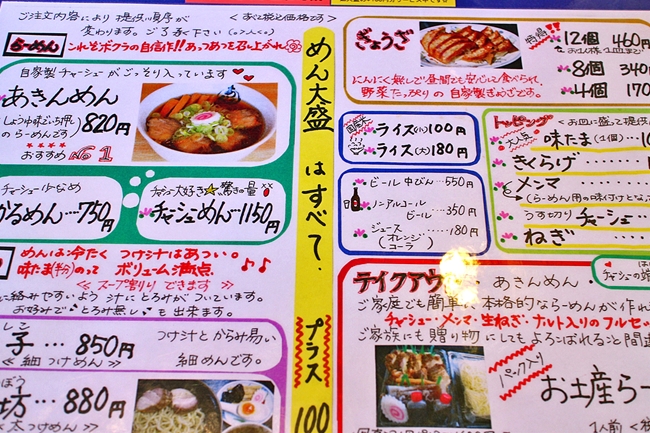 ご注文内容により提供順序が
変わります。ご了承下さい
<すべて税込価格です>
らーめん
これぞボクラの自信作!!あっつあつを召し上がれ
自家製チャーシューがごっそり入っています
あきんめん
820円
のらーめんです)
おすすめ No1
チャーシュー少なめ
かるめん…750円
チャーシュー大好き☆驚きの量
チャーシューめん…1150円
めんは冷たく つけ汁はあつい。
味たま(半分)のって ボリューム満点
<スープ割り できます>
に絡みやすいよう 汁にとろみがついています。
お好みで"とろみ無し"も出来ます。
子…850円
<細つけめん>
つけ汁とからみ易い
細めんです。
坊…880円
<太つけめん>
めん大盛はすべて、プラス100
ぎょうざ
特得!!
12個 460円
8個 340
4個 170
にんにく無しで昼間でも安心して食べられ、
野菜たっぷりの自家製ぎょうざです。
ライス(小)100円
ライス(大)180円
ビール 中びん…550円
ノンアルコール
ビール …350円
ジュース …180円
(オレンジ
コーラ)
トッピング
<お皿に盛って提供
大人気
味たま(1個)…10
きくらげ
メンマ
(らーめん用の味付けとな
うす切りチャーシュー
ねぎ
チャーシューの端
テイクアウ
あきんめん・
ご家庭でも簡単に本格的ならーめんが作れ
チャーシュー・メンマ・生ねぎ・ナルト入りのフルセ
ご家族にも贈り物にしてもよろこばれること間違
パック入り
お土産らー
1人前